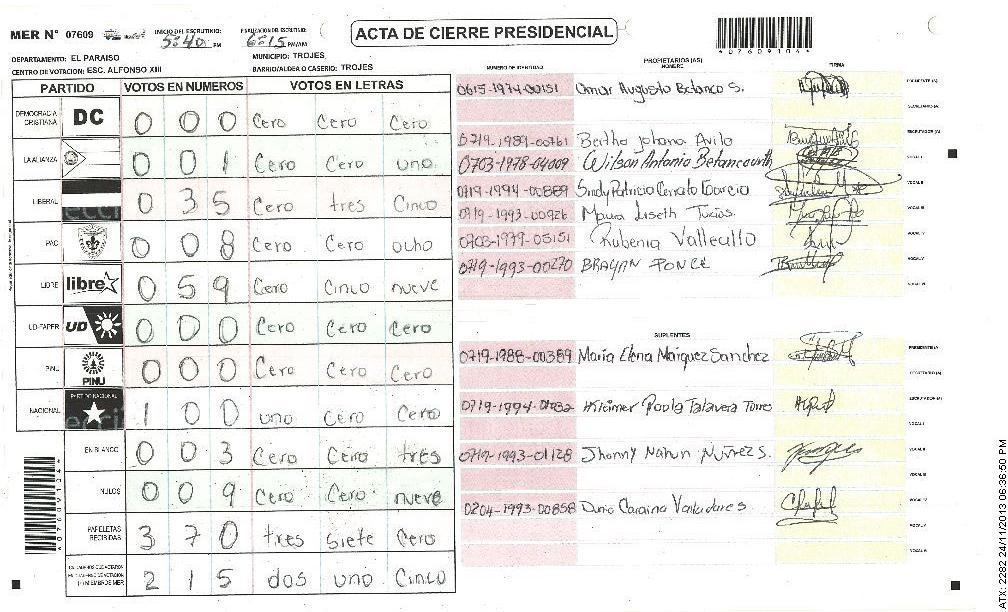 MER N° 07609 INICIO DEL ESCRUTINIO: 5:40 PM 6:15 PM/AM
ACTA DE CIERRE PRESIDENCIAL
*07609104*
DEPARTAMENTO: EL PARAISO MUNICIPIO: TROJES
CENTRO DE VOTACION: ESC. ALFONSO XIII BARRIO/ALDEA O CASERIO: TROJES
PARTIDO VOTOS EN NUMEROS VOTOS EN LETRAS
DEMOCRACIA CRISTIANA DC 0 0 0 Cero Cero Cero
LA ALIANZA 0 0 1 Cero Cero uno
LIBERAL 0 3 5 Cero tres Cinco
PAC 0 0 8 Cero Cero ocho
LIBRE libre 0 5 9 Cero Cinco nueve
UD-FAPER UD 0 0 0 Cero Cero Cero
PINU PINU 0 0 0 Cero Cero Cero
NACIONAL PARTIDO NACIONAL 1 0 0 uno Cero Cero
EN BLANCO 0 0 3 Cero Cero tres
NULOS 0 0 9 Cero Cero nueve
PAPELETAS RECIBIDAS 3 7 0 tres siete Cero
2 1 5 dos uno Cinco
*07609104*
PROPIETARIOS (AS)
NUMERO DE IDENTIDAD NOMBRE FIRMA
0615-1974-00151 Omar Augusto Betanco S. PRESIDENTE (A)
SECRETARIO (A)
0719-1989-00761 Bertha Johana Avila ESCRUTADOR (A)
0703-1978-04009 Wilson Antonio Betancourth VOCAL I
0719-1994-00889 Sindy Patricia VOCAL II
0719-1993-00926 Maura Liseth Turcios. VOCAL III
0703-1979-05151 Rubenia Vallecillo VOCAL IV
0719-1993-00270 BRAYAN PONCE VOCAL V
VOCAL VI
SUPLENTES
0719-1988-00389 Maria Elena Marquez Sanchez PRESIDENTE (A)
SECRETARIO (A)
Paola Talavera Torres ESCRUTADOR (A)
VOCAL I
0719-1993-01128 Jhonny Nahun Nuñez S. VOCAL II
VOCAL III
0704-1993-00858 Carolina Valladares VOCAL IV
VOCAL V
VOCAL VI
ATX: 2282 24/11/2013 06:36:50 PM